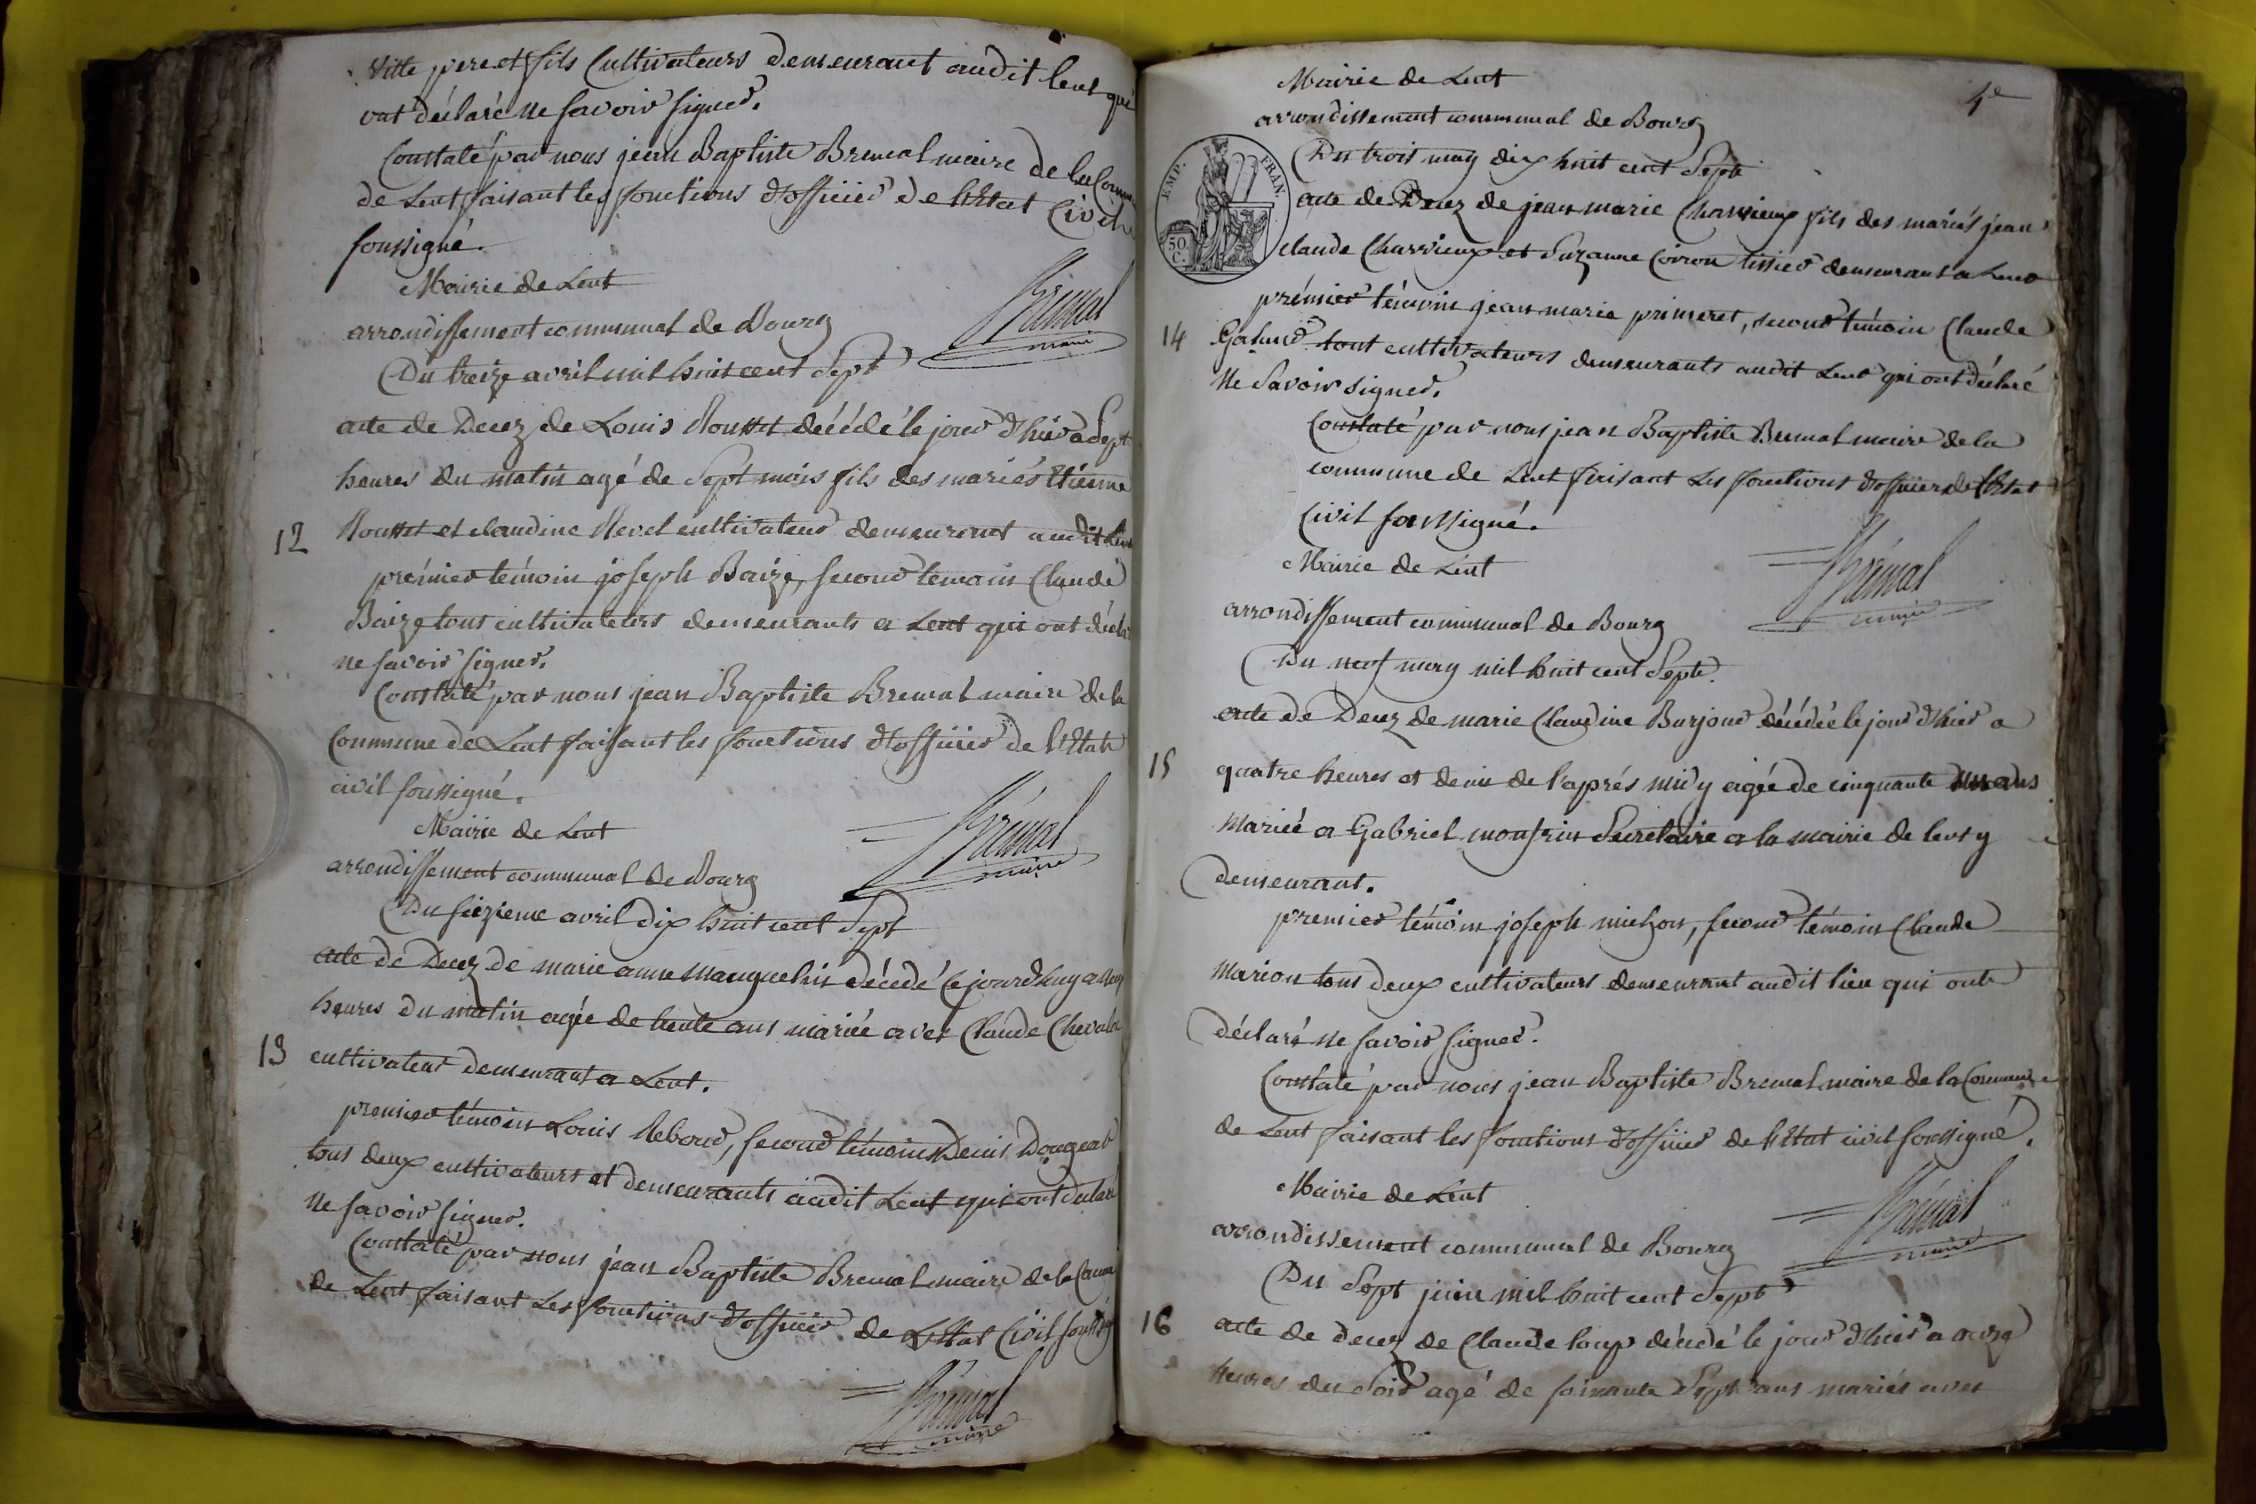 Ville pere et fils Cultivateurs demeurant audit lent qui
ont déclaré ne savoir signer.
Constaté par nous jean Baptiste Bremal maire de la Comm
de Lent faisant les fonctions d'officier de l'Etat Civil
soussigné.
Brémal
maire
Mairie de Lent
arrondissement communal de Bourg
Du treize avril mil huit cent Sept
acte de Decez de Louis Rousset décédé le jour d'hier a Sept
heures du matin agé de Sept mois fils des mariés Etienne
12
Rousset et claudine Revel cultivateur demeurant audit Lent
prémier témoin joseph Baize, second temoin Claude
Baize tous cultivateurs demeurants a Lent qui ont décla
ne savoir signer.
Constaté par nous jean Baptiste Bremal maire de la
Commune de Lent faisant les fonctions d'officier de l'Etat
civil soussigné.
Brémal
maire
Mairie de Lent
arrondissement communal de Bourg
Du sizieme avril dix huit cent Sept
acte de Decez de marie anne décedé Cejourdhuy a
heures du matin agée de trente ans mariée avec Claude
13
cultivateur demeurant a Lent.
premier témoin Louis Reboud, second témoin Denis
tous deux cultivateurs et demeurants audit Lent qui ont declaré
ne savoir signer.
Constaté par nous jean Baptiste Bremal maire de la
de Lent faisant les fonctions d'officier de L'Etat Civil
Brémal
maire
4e
Mairie de Lent
arrondissement communal de Bourg
Du trois may dix huit cent Sept
EMP. FRAN.
50 C.
acte de Decez de jean marie Charvieux fils des mariés jean
claude Charvieux et Suzanne Coiron tissier demeurant a Lent
prémier témoin jean marie primeret, second témoin Claude
14
tout cultivateurs demeurants audit Lent qui ont déclaré
ne Savoir signer.
Constaté par nous jean Baptiste Bremal maire de la
commune de Lent faisant Les fonctions d'officier de l'Etat
Civil soussigné.
Brémal
maire
Mairie de Lent
arrondissement communal de Bourg
Du neuf may mil huit cent Sept.
acte de Decez de marie Claudine Burjoud décédée le jour d'hier a
15
quatre heures et demie de l'aprés midy agée de cinquante ans
mariée a Gabriel monfrin Secretaire a la mairie de lent y
demeurant.
premier témoin joseph michon, second témoin Claude
marion tous deux cultivateurs demeurant audit lieu qui ont
déclaré ne savoir signer.
Constaté par nous jean Baptiste Bremal maire de la Commune
de Lent faisant les fonctions d'officier de l'Etat civil soussigné.
Brémal
maire
Mairie de Lent
arrondissement communal de Bourg
Du Sept juin mil huit cent Sept
16
acte de decez de Claude loup décédé le jour d'hier a onze
heures du Soir agé de soixante Sept ans mariés avec